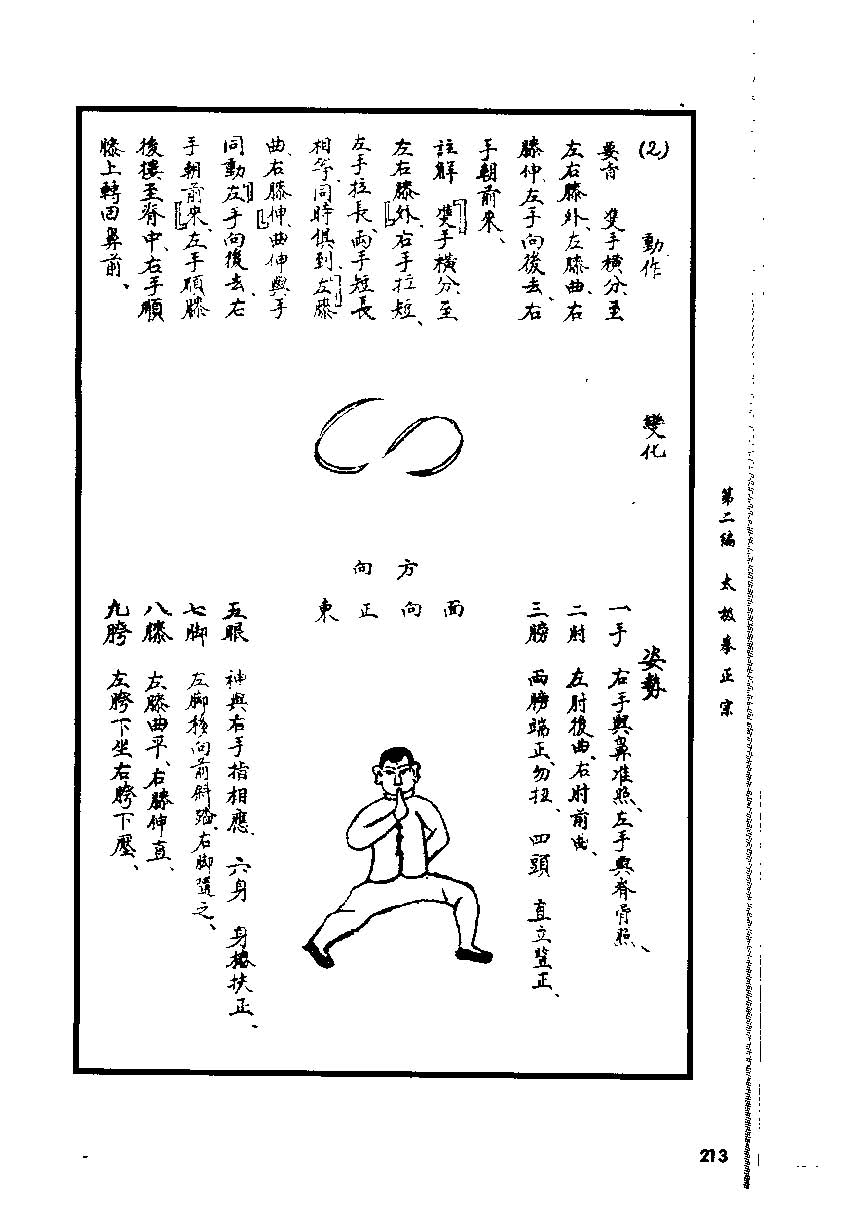 第二編 太極拳正宗
(2) 動作
要旨 雙手橫分至
左右膝外、左膝曲、右
膝伸、左手向後去、右
手朝前來、
註解 雙手橫分、至
左右膝外、右手拉短、
左手拉長、兩手短長
相等、同時俱到、左膝
曲、右膝伸、曲伸與手
同動、左手向後去、右
手朝前來、左手順膝
後摟至脊中、右手順
膝上轉回鼻前、
變化
方向
面向正東
姿勢
一手 右手與鼻准照、左手與脊骨照、
二肘 左肘後曲、右肘前曲、
三膀 兩膀端正、勿扭、 四頭 直立豎正、
五眼 神與右手指相應、 六身 身樁扶正、
七脚 左脚移向前斜踏、右脚隨之、
八膝 左膝曲平、右膝伸直、
九胯 左胯下坐、右胯下壓、
213